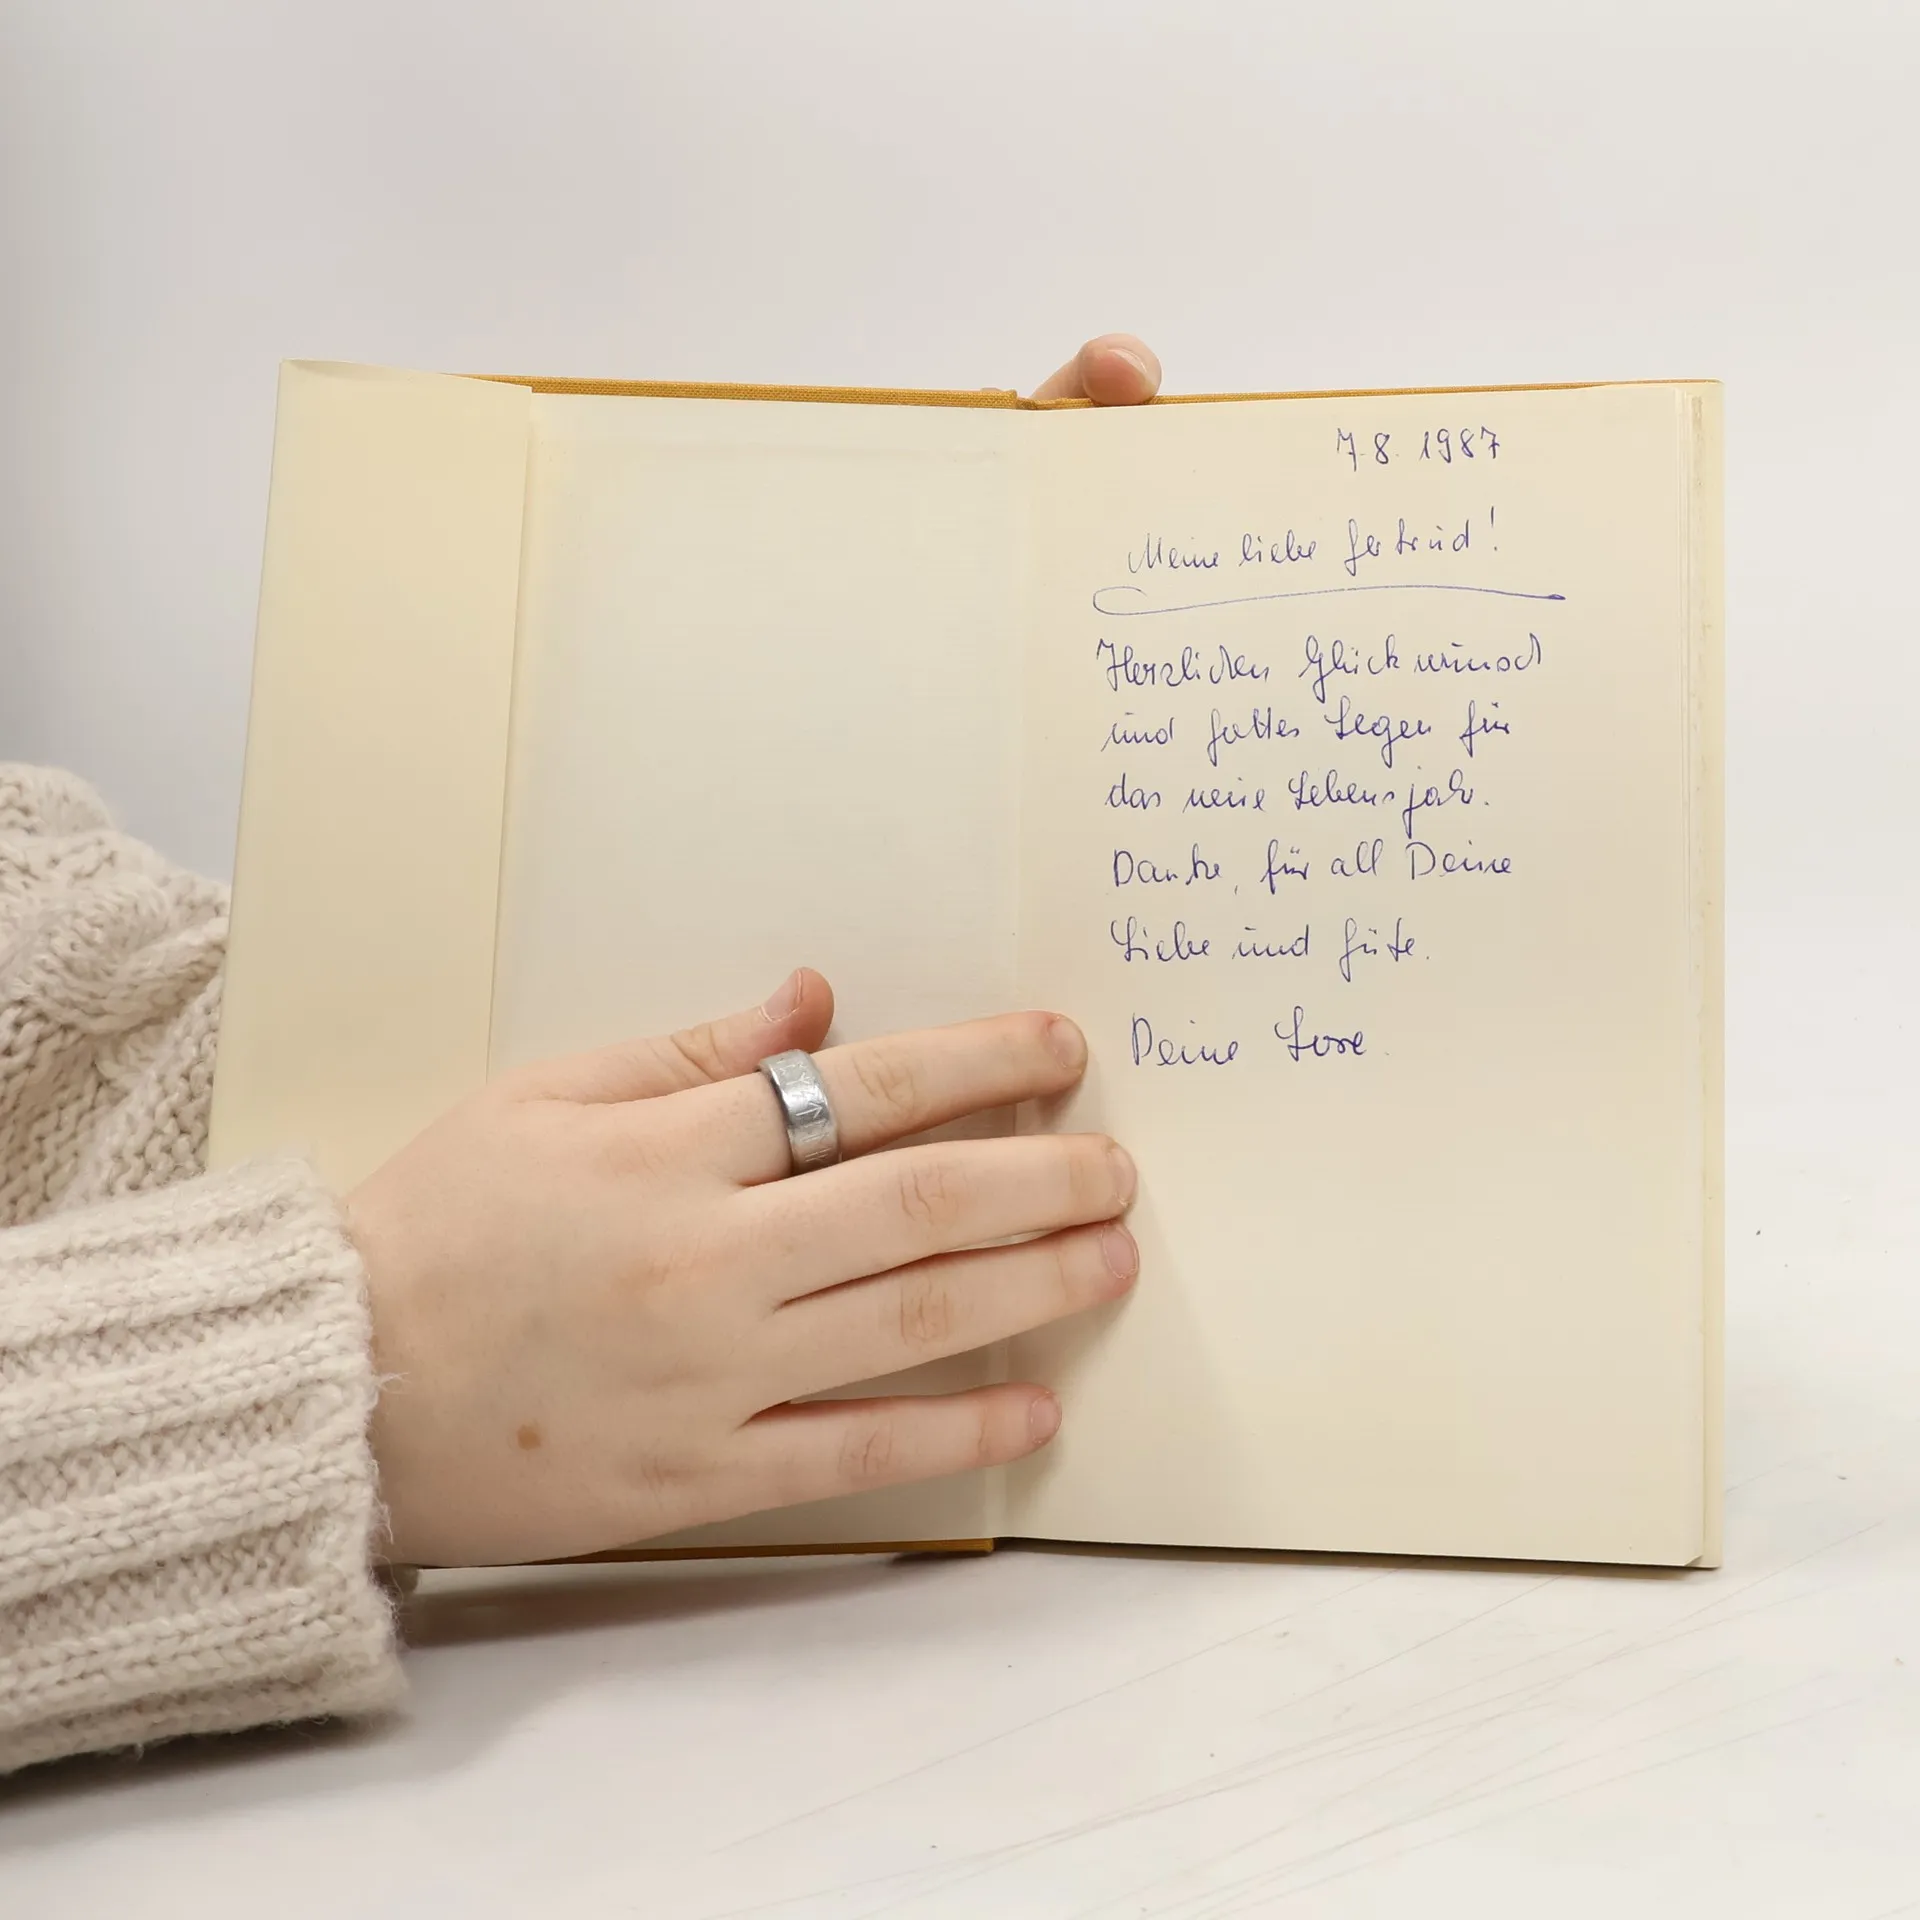 7.8.1987
Meine liebe Gertrud!
Herzlichen Glückwunsch
und Gottes Segen für
das neue Lebensjahr.
Danke, für all Deine
Liebe und Güte.
Deine Lore.